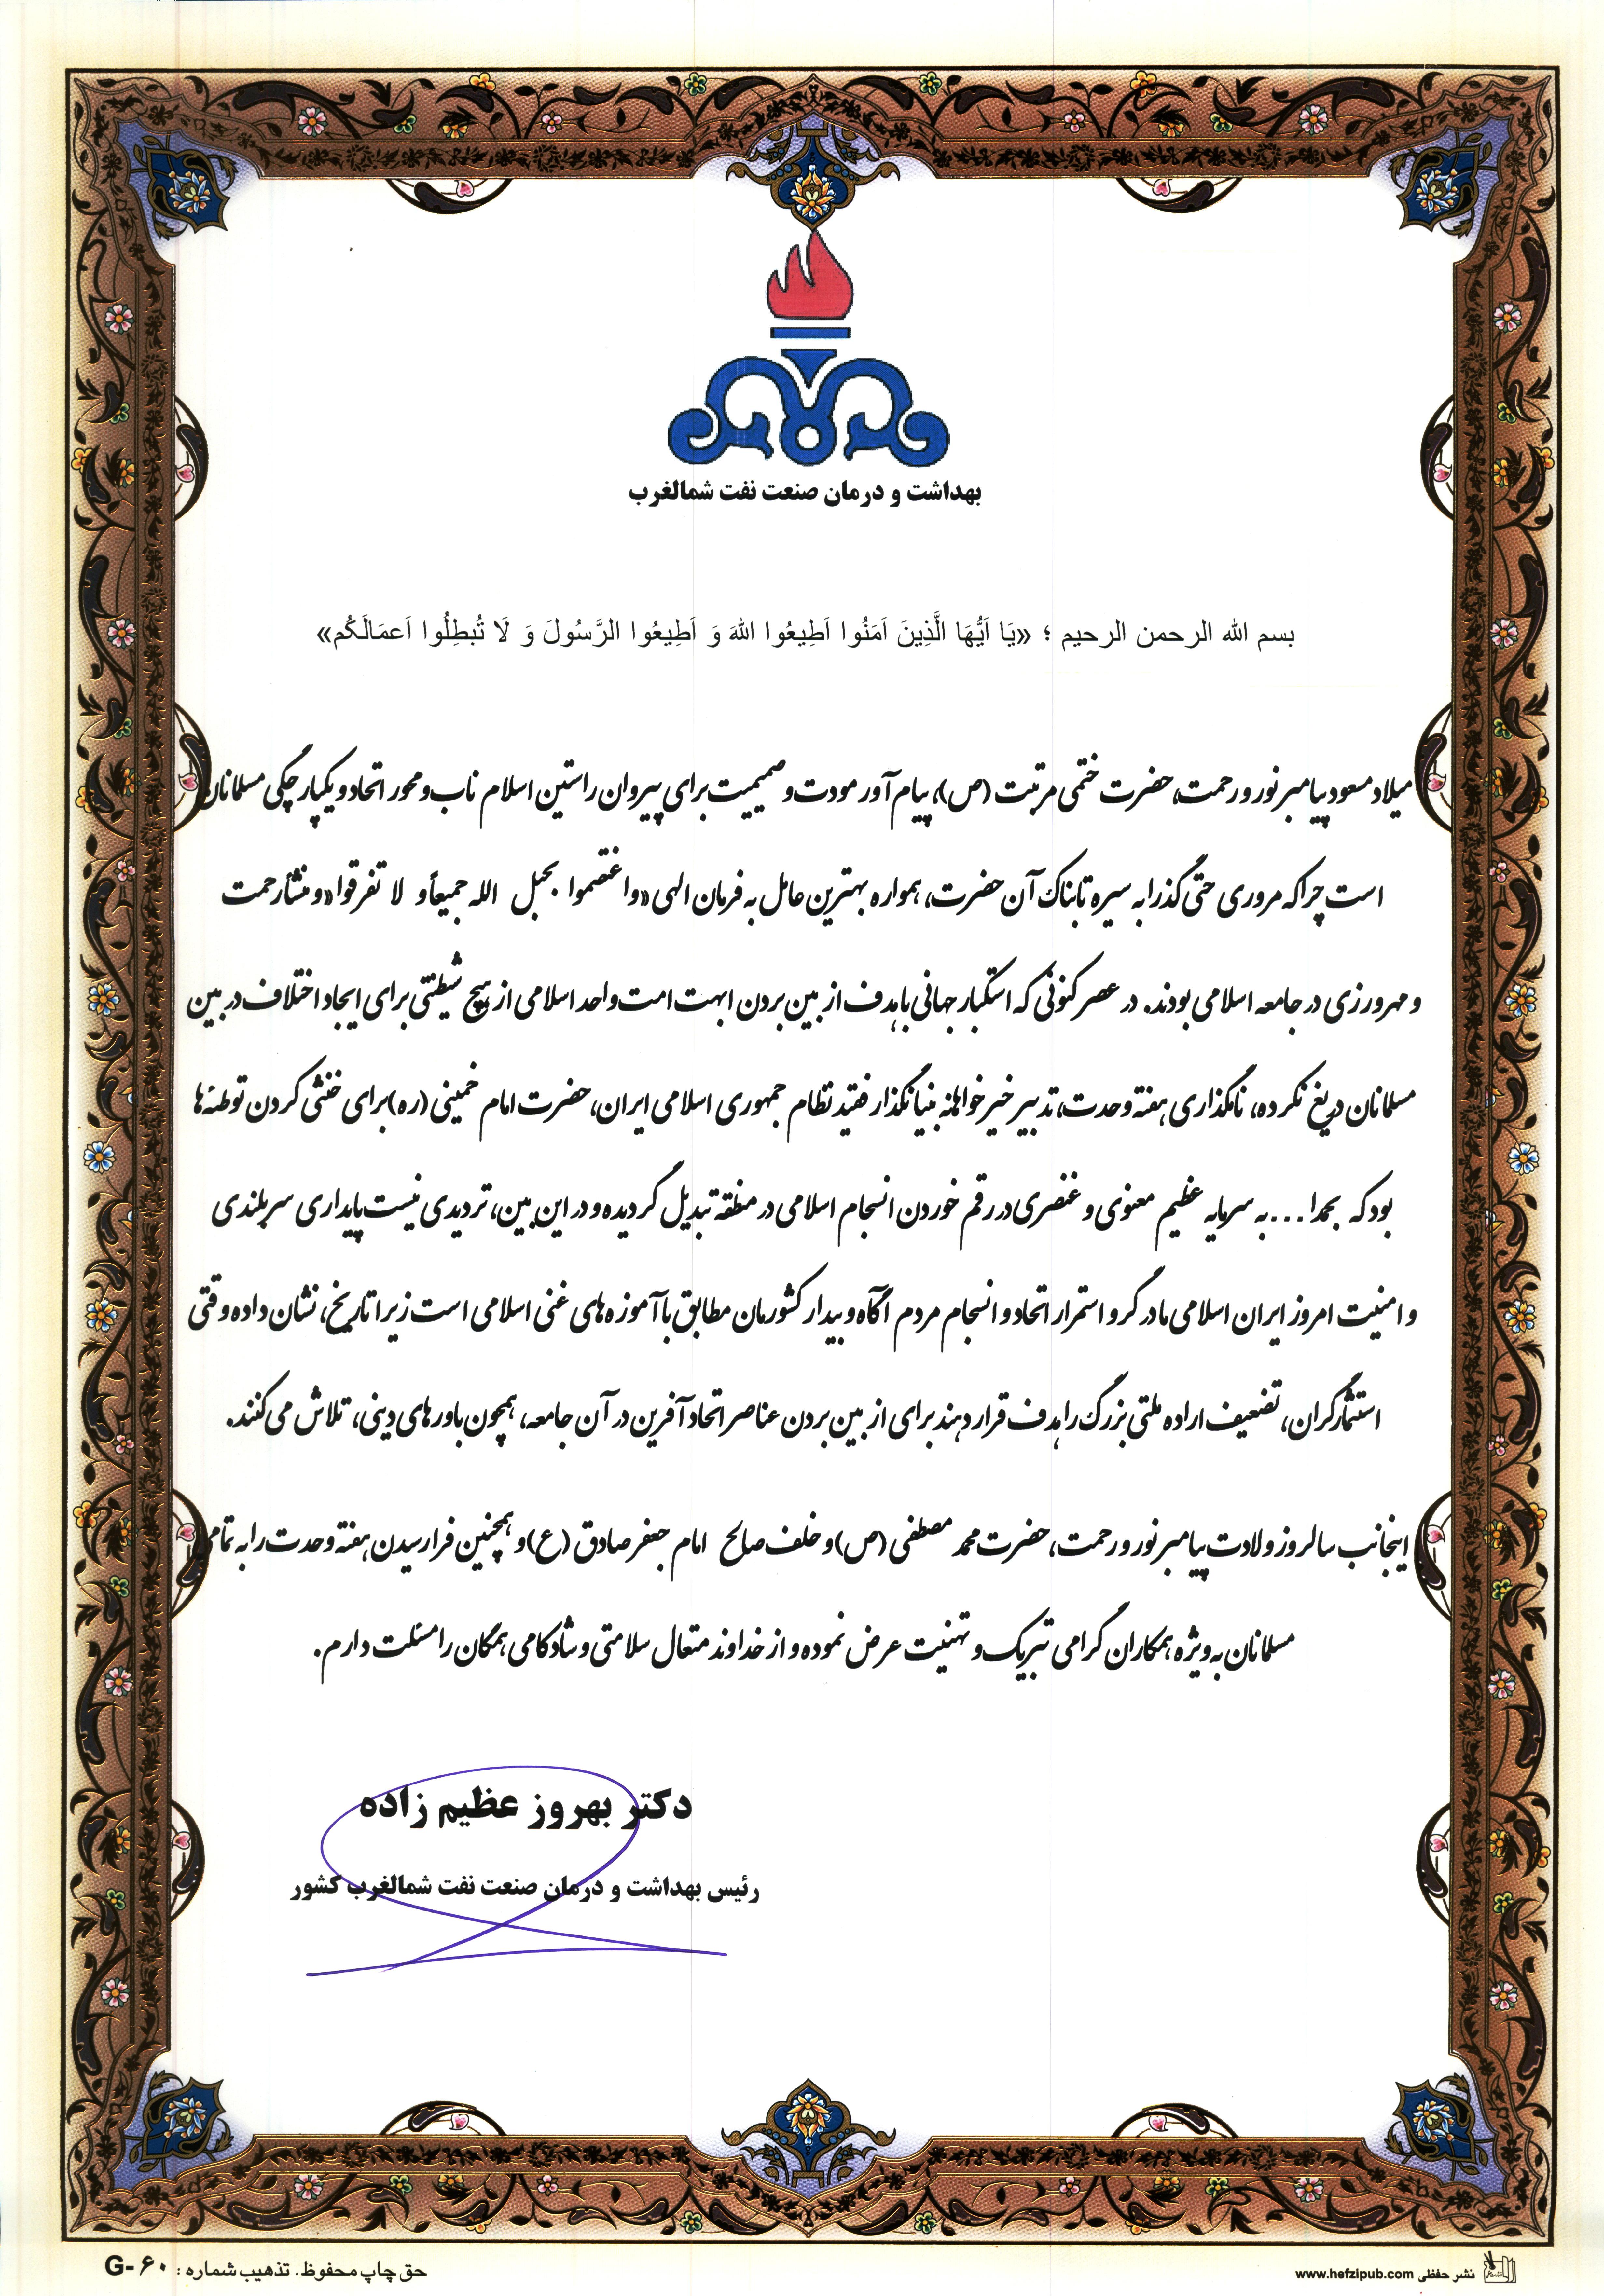 بهداشت و درمان صنعت نفت شمالغرب
بسم الله الرحمن الرحیم ؛ «یَا اَیُّهَا الَّذِینَ اَمَنُوا اَطِیعُوا اللهَ وَ اَطِیعُوا الرَّسُولَ وَ لَا تُبطِلُوا اَعمَالَکُم»
میلاد مسعود پیامبر نور و رحمت، حضرت ختمی مرتبت (ص)، پیام آور مودت و صمیمیت برای پیروان راستین اسلام ناب و محور اتحاد و یکپارچگی مسلمانان
است چرا که مروری حتی گذرا به سیره تابناک آن حضرت، همواره بهترین عامل به فرمان الهی «واعتصموا بحبل الله جمیعأو لا تفرقوا» و منشأ رحمت
و مهرورزی در جامعه اسلامی بودند. در عصر کنونی که استکبار جهانی با هدف از بین بردن ابهت امت واحد اسلامی از هیچ شیطنتی برای ایجاد اختلاف در بین
مسلمانان دریغ نکرده، نامگذاری هفته وحدت، تدبیر خیرخواهانه بنیانگذار فقید نظام جمهوری اسلامی ایران، حضرت امام خمینی (ره) برای خنثی کردن توطئه‌ها
بود که بحمدا... به سرمایه عظیم معنوی و عنصری در رقم خوردن انسجام اسلامی در منطقه تبدیل گردیده و در این بین، تردیدی نیست پایداری سربلندی
و امنیت امروز ایران اسلامی ما در گرو استمرار اتحاد و انسجام مردم آگاه و بیدار کشورمان مطابق با آموزه‌های غنی اسلامی است زیرا تاریخ، نشان داده وقتی
استثمارگران، تضعیف اراده ملتی بزرگ را هدف قرار دهند برای از بین بردن عناصر اتحاد آفرین در آن جامعه، همچون باورهای دینی، تلاش می‌کنند.
اینجانب سالروز ولادت پیامبر نور و رحمت، حضرت محمد مصطفی (ص) و خلف صالح امام جعفر صادق (ع) و همچنین فرارسیدن هفته وحدت را به تمامی
مسلمانان به ویژه همکاران گرامی تبریک و تهنیت عرض نموده و از خداوند متعال سلامتی و شادکامی همگان را مسئلت دارم.
دکتر بهروز عظیم زاده
رئیس بهداشت و درمان صنعت نفت شمالغرب کشور
نشر حفظی www.hefzipub.com
حق چاپ محفوظ. تذهیب شماره : G-۶۰